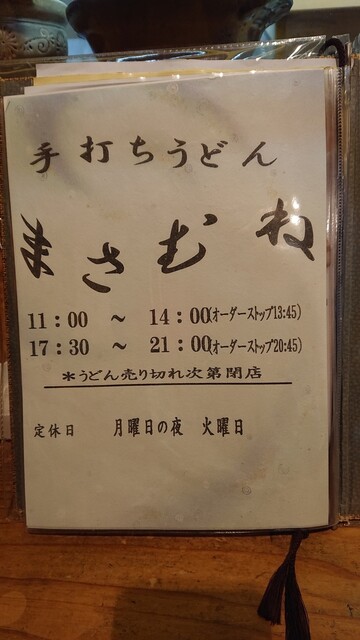 手打ちうどん
まさむね
11：00 ～ 14：00(オーダーストップ13:45)
17：30 ～ 21：00(オーダーストップ20:45)
＊うどん売り切れ次第閉店
定休日 月曜日の夜 火曜日